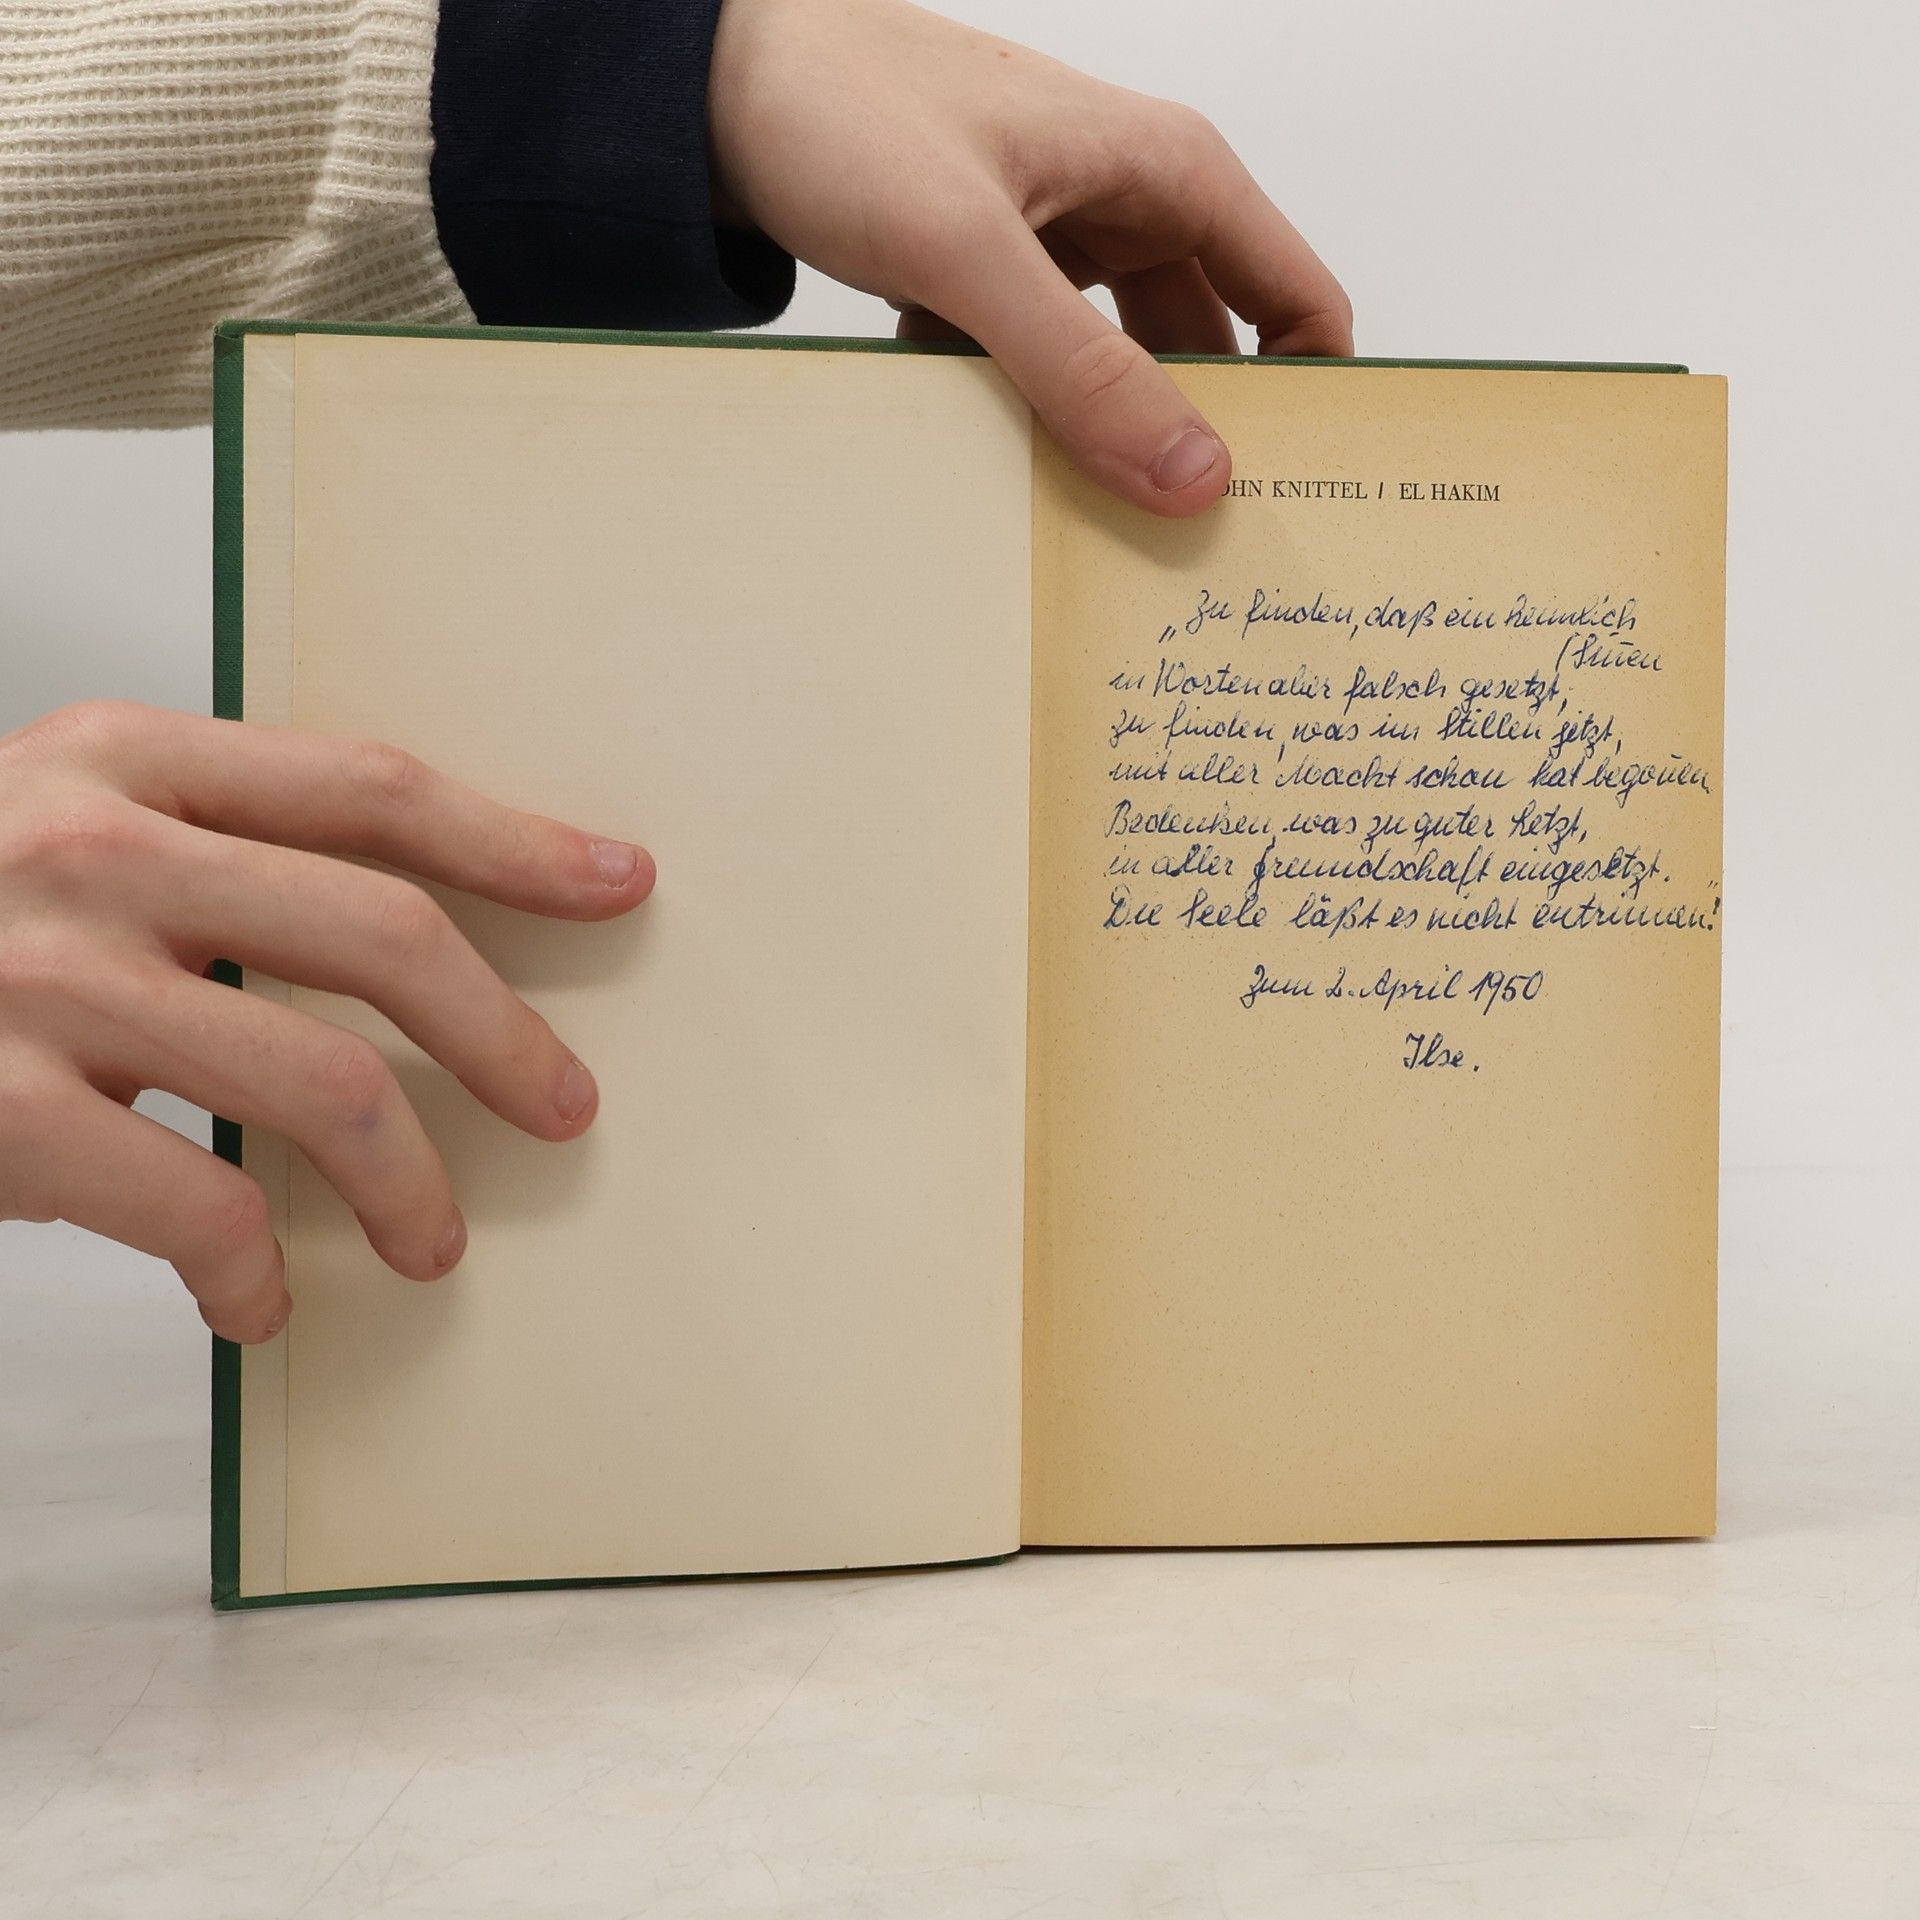 OHN KNITTEL / EL HAKIM
„Zu finden, daß ein heimlich
(Siñen
in Worten aber falsch gesetzt,
zu finden, was im Stillen jetzt,
mit aller Macht schon hat begoñen.
Bedenken, was zu guter Letzt,
in aller Freundschaft eingesetzt.
Die Seele läßt es nicht entrinnen!"
Zum 2. April 1950
Ilse.